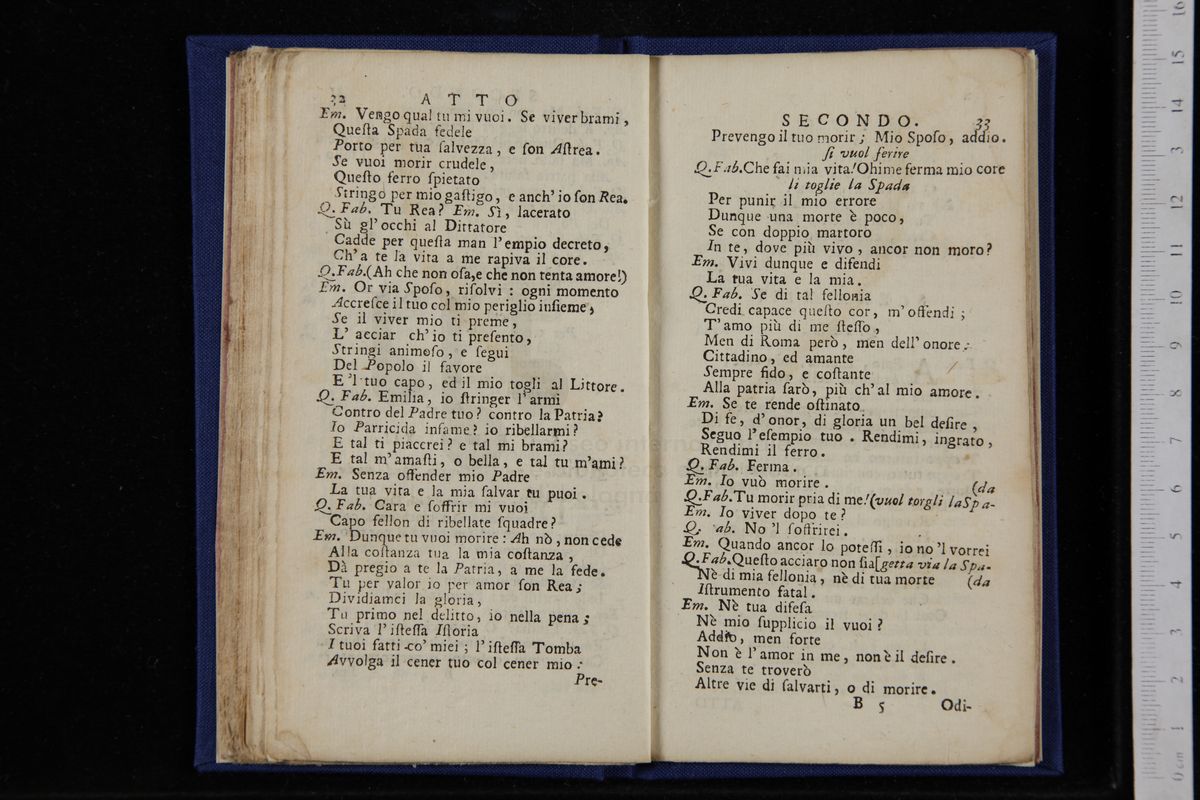 32 ATTO
Em. Vengo qual tu mi vuoi. Se viver brami,
Queſta Spada fedele
Porto per tua ſalvezza, e ſon Aſtrea.
Se vuoi morir crudele,
Queſto ferro ſpietato
Stringo per mio gaſtigo, e anch' io ſon Rea.
Q. Fab. Tu Rea? Em. Sì, lacerato
Sù gl'occhi al Dittatore
Cadde per queſta man l'empio decreto,
Ch'a te la vita a me rapiva il core.
Q.Fab.(Ah che non oſa,e che non tenta amore!)
Em. Or via Spoſo, riſolvi : ogni momento
Accreſce il tuo col mio periglio inſieme,
Se il viver mio ti preme,
L' acciar ch'io ti preſento,
Stringi animoſo, e ſegui
Del Popolo il favore
E 'l tuo capo, ed il mio togli al Littore.
Q. Fab. Emilia, io ſtringer l'armi
Contro del Padre tuo? contro la Patria?
Io Parricida infame? io ribellarmi?
E tal ti piaccrei? e tal mi brami?
E tal m'amaſti, o bella, e tal tu m'ami?
Em. Senza offender mio Padre
La tua vita e la mia ſalvar tu puoi.
Q. Fab. Cara e ſoffrir mi vuoi
Capo fellon di ribellate ſquadre?
Em. Dunque tu vuoi morire : Ah nò, non cede
Alla coſtanza tua la mia coſtanza,
Dà pregio a te la Patria, a me la fede.
Tu per valor io per amor ſon Rea;
Dividiamci la gloria,
Tu primo nel delitto, io nella pena;
Scriva l'iſteſſa Iſtoria
I tuoi fatti co' miei ; l'iſteſſa Tomba
Avvolga il cener tuo col cener mio :
Pre-
SECONDO. 33
Prevengo il tuo morir ; Mio Spoſo, addio.
ſi vuol ferire
Q.Fab.Che fai mia vita!Ohime ferma mio core
li toglie la Spada
Per punir il mio errore
Dunque una morte è poco,
Se con doppio martoro
In te, dove più vivo, ancor non moro?
Em. Vivi dunque e difendi
La tua vita e la mia.
Q. Fab. Se di tal fellonia
Credi capace queſto cor, m'offendi ;
T'amo più di me ſteſſo,
Men di Roma però, men dell'onore:
Cittadino, ed amante
Sempre fido, e coſtante
Alla patria ſarò, più ch'al mio amore.
Em. Se te rende oſtinato
Di fe, d'onor, di gloria un bel deſire,
Seguo l'eſempio tuo. Rendimi, ingrato,
Rendimi il ferro.
Q. Fab. Ferma.
Em. Io vuò morire. (da
Q.Fab.Tu morir pria di me!(vuol torgli la Spa-
Em. Io viver dopo te?
Q. ab. No 'l ſoffrirei.
Em. Quando ancor lo poteſſi, io no 'l vorrei
Q.Fab.Queſto acciaro non ſia[getta via la Spa-
Nè di mia fellonia, nè di tua morte (da
Iſtrumento fatal.
Em. Nè tua difeſa
Nè mio ſupplicio il vuoi?
Addio, men forte
Non è l'amor in me, non è il deſire.
Senza te troverò
Altre vie di ſalvarti, o di morire.
B 5 Odi-